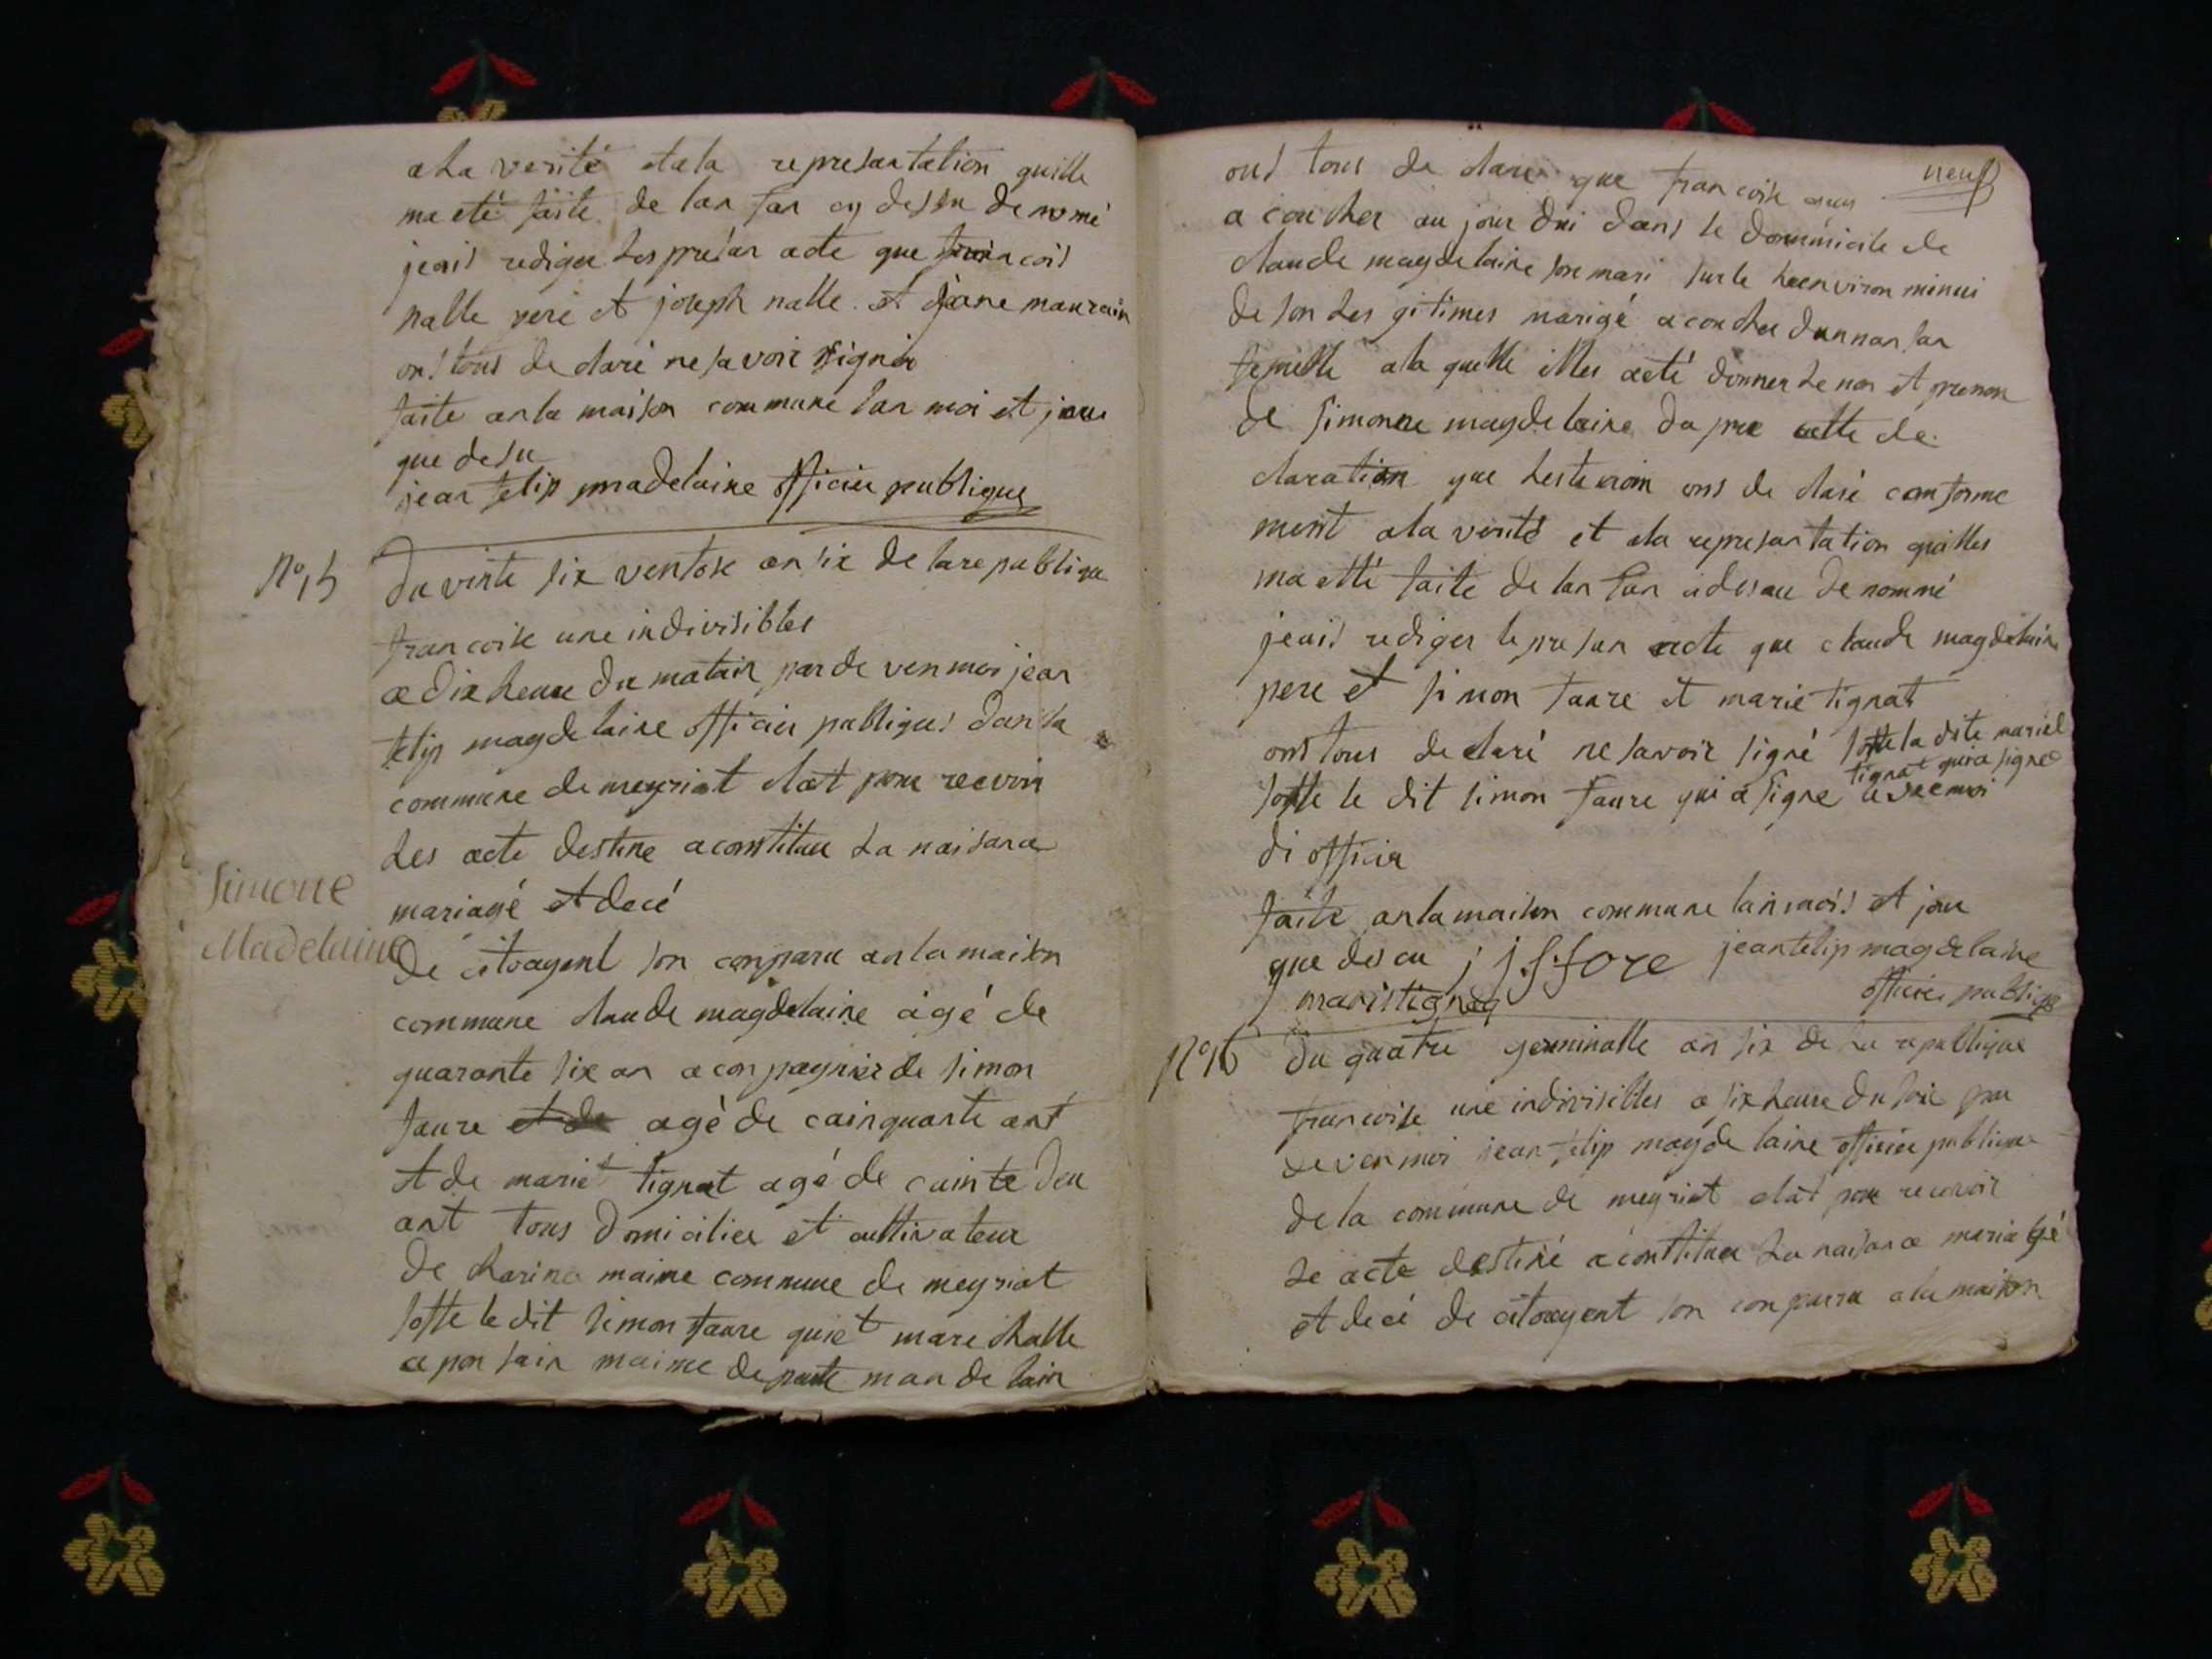 a la verité et a la represantation quille
ma eté faite de lan fan cy desu denomé
jeais rediger les presan acte que francois
nalle pere et joseph nalle et jane maurain
ons tous de claré ne savoir signer
faite an la maison commune lan moi et jour
que desu
jean felip madelaine officier publique
N° 15 Du vinte six ventose an six de la republique
francoise une indivisibles
a dix heure du matain par de ven moi jean
felip magdelaine officier publiques dans la
commune de meyriat elat pour recevoir
les acte destine a constituer la naisance
mariagé et decé
Simone
Madelaine
De citoayent son conparu an la maison
commune claude magdelaine agé de
quarante six an aconpagnier de simon
faure et de agé de cainquante ant
et de mariet tignat agé de cuinte deu
ant tous domicilier et cultivateur
de charina maime commune de meyriat
sotte le dit simon faure quiet marechalle
a pon sain maime departe man de lain
neuf
ons tous de claré que francoise
a coucher au jour dui dans le dommicile de
claude magdelaine son mari sur le heenviron minui
de son les gitimes marigé a coucher dun nan fan
femelle a la quelle illes aeté donner le non et prenon
de simonne magdelaine da pre cette de
claration que les temoin ons de claré comforme
ment a la verité et a la represantation quilles
ma etté faite de lan fan ci desau denommé
jeais rediger le presan acte que claude magdelaine
pere et simon faure et marie tignat
ons tous declaré ne savoir signé sotte la dite mariet
tignat qui a signe
sotte le dit simon faure qui a signe avec moi
di officier
faite an la maison commune lan mois et jour
que desu j j f fore jean felip magdelaine
maristignat officier publique
N° 16 du quatre germinalle an six de la republique
francoise une indivisibles a six heure du soir par
deven moi jean felip magdelaine officier publique
de la commune de meyriat elat pour recevoir
le acte destiné a constituer la naisance mariagé
et decé de citoayent son conparru a la maison